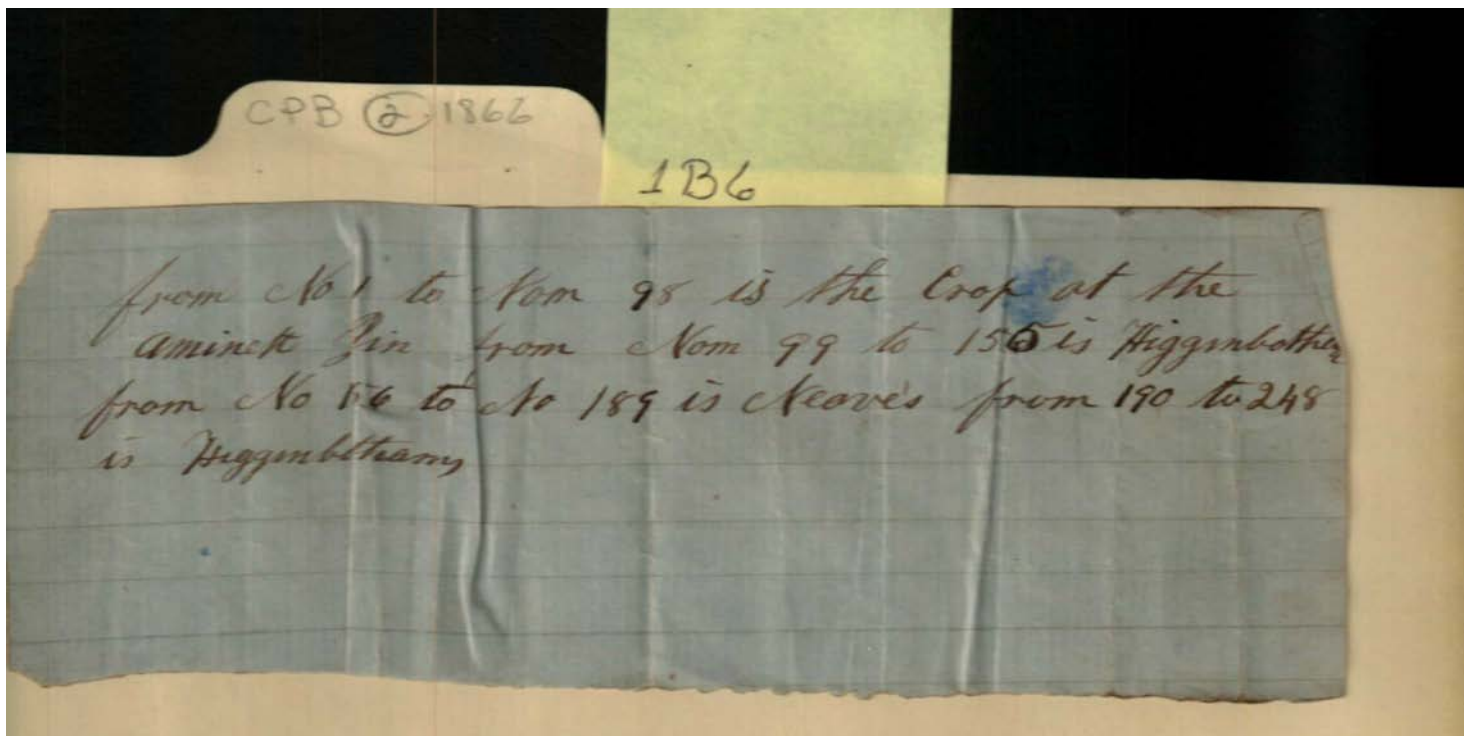 CPB 2 1866
1B6
from No 1 to Nom 98 is the Crop at the
Gin from Nom 99 to 155 is Higginbotham
from No 156 to No 189 is Neave's from 190 to 248
is Higginbothams